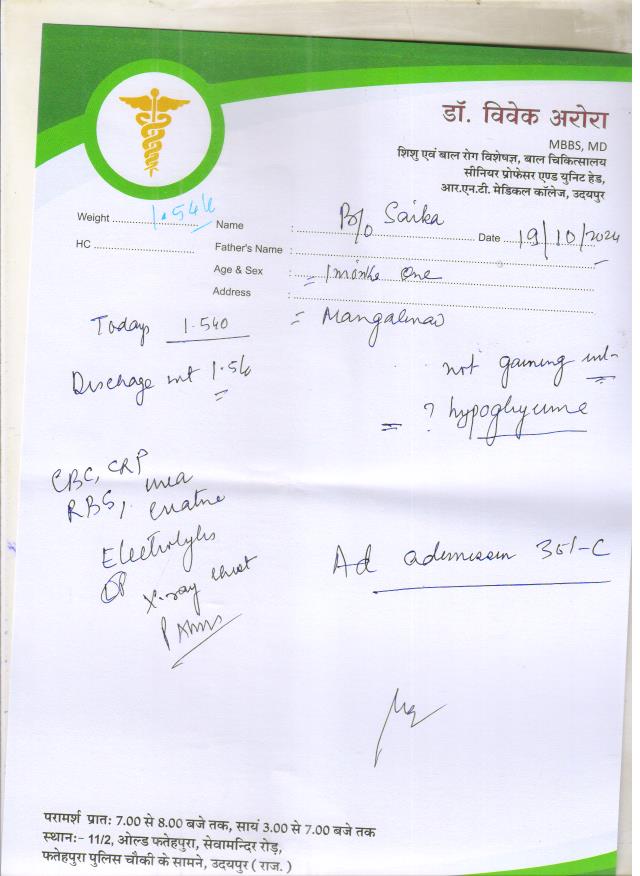 डॉ. विवेक अरोरा
MBBS, MD
शिशु एवं बाल रोग विशेषज्ञ, बाल चिकित्सालय
सीनियर प्रोफेसर एण्ड युनिट हेड,
आर.एन.टी. मेडिकल कॉलेज, उदयपुर
Weight 1.54k Name : B/o Saika Date 19/10/2024
HC Father's Name :
Age & Sex : = 1 months one
Address :
Today 1.540 =
Discharge wt 1.54
not gaining wt
= ? hypoglycume
CBC, CRP
RBS, urea
Electrolyts
X-ray chest
Ad admission 301-C
परामर्श प्रातः 7.00 से 8.00 बजे तक, सायं 3.00 से 7.00 बजे तक
स्थानः- 11/2, ओल्ड फतेहपुरा, सेवामन्दिर रोड़,
फतेहपुरा पुलिस चौकी के सामने, उदयपुर ( राज. )